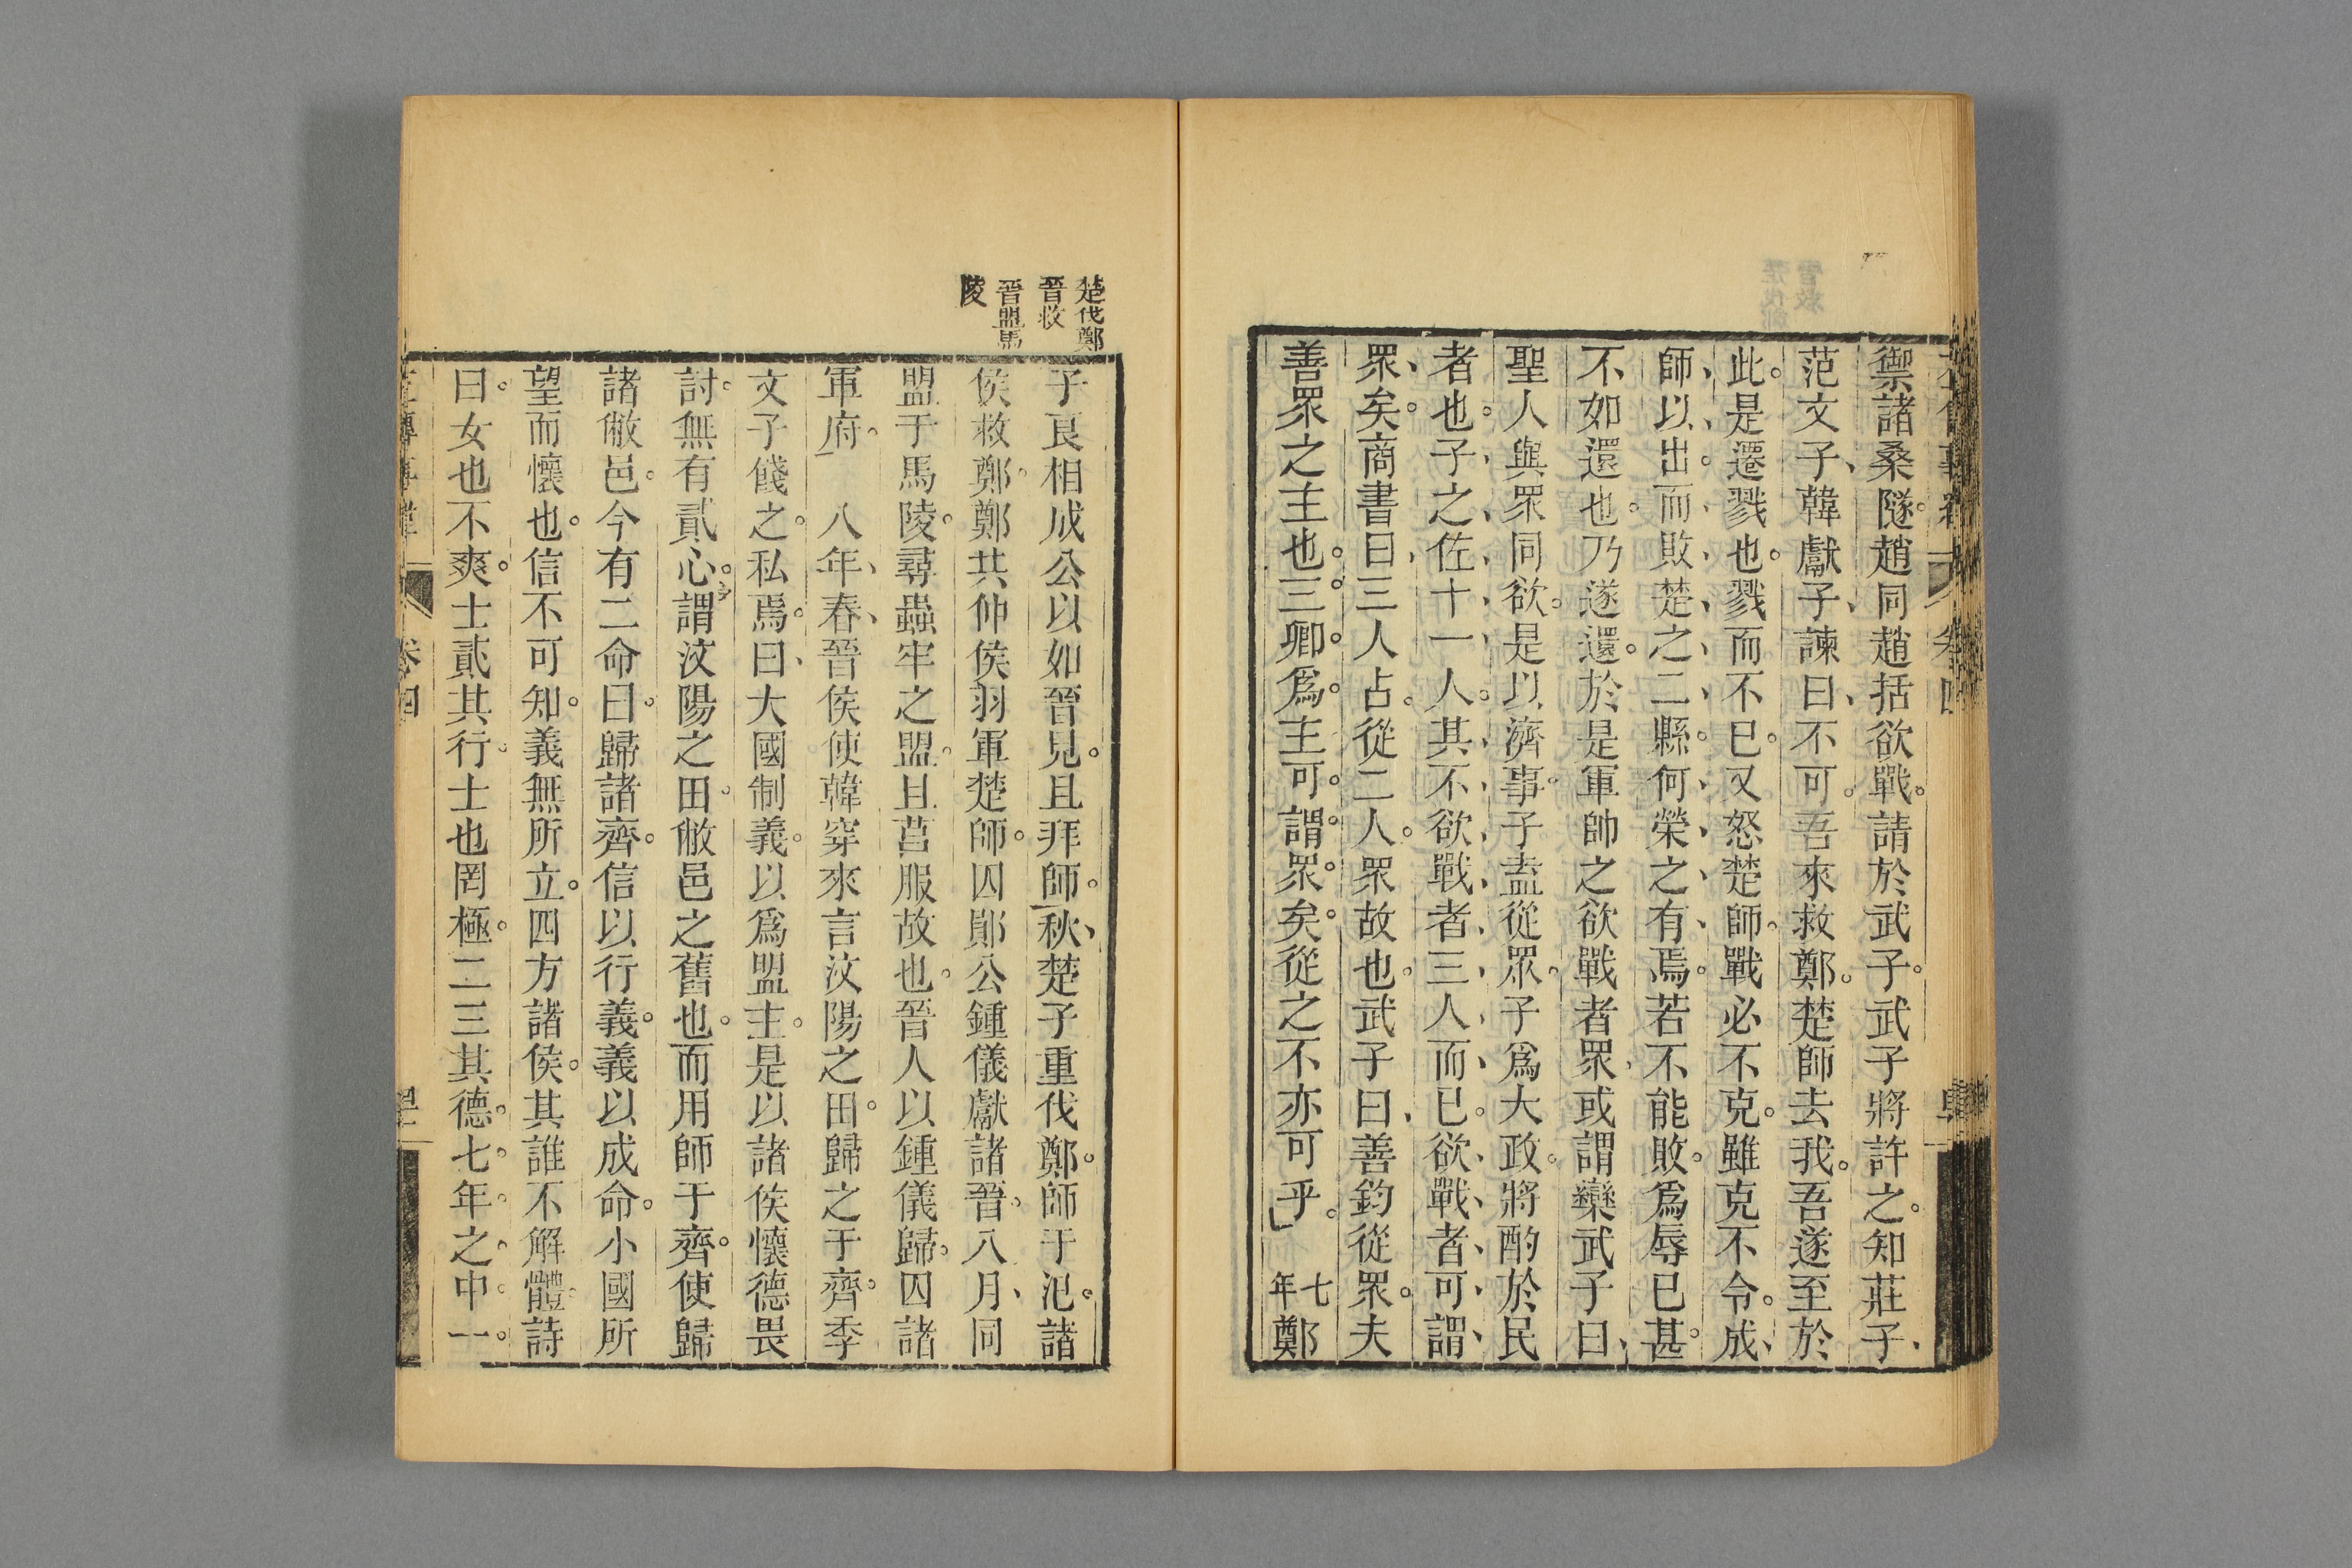 禦諸桑隧。趙同趙括欲戰。請於武子。武子將許之。知莊子、
范文子、韓獻子、諫曰、不可。吾來救鄭。楚師去我。吾遂至於
此。是遷戮也。戮而不已。又怒楚師。戰必不克。雖克不令。成、
師、以、出。而、敗、楚、之、二、縣。何、榮、之、有、焉。若不能敗。爲辱已甚。
不如還也。乃遂還。於是軍帥之欲戰者眾、或謂欒武子曰、
聖人與眾同欲。是以濟事。子盍從眾。子爲大政。將酌於民
者也。子、之、佐、十、一、人。其、不、欲、戰、者、三、人、而、已。欲、戰、者、可、謂、
眾、矣。商書曰、三人占。從二人。眾故也。武子曰、善鈞從眾。夫
善眾之主也。三。卿。爲。主可。謂。眾。矣。從之不亦可乎。七年鄭
楚伐鄭
晉救
晉盟馬
陵
子良相成公以如晉見。且拜師。秋、楚子重伐鄭。師于氾。諸
侯救鄭。鄭共仲侯羽軍楚師。囚鄖公鍾儀獻諸晉。八月、同
盟于馬陵。尋蟲牢之盟。且莒服故也。晉人以鍾儀歸。囚諸
軍府。 八年、春、晉侯使韓穿來言汶陽之田。歸之于齊。季
文子餞之。私焉。曰、大國制義。以爲盟主。是以諸侯懷德畏
討。無有貳心。謂汶陽之田。敝邑之舊也。而用師于齊。使歸
諸敝邑。今有二命。曰。歸諸齊。信以行義。義以成命。小國所
望而懷也。信不可知。義無所立。四方諸侯。其誰不解體。詩
曰。女也不爽。士貳其行。士也罔極。二三其德。七。年。之。中。一。
卷四